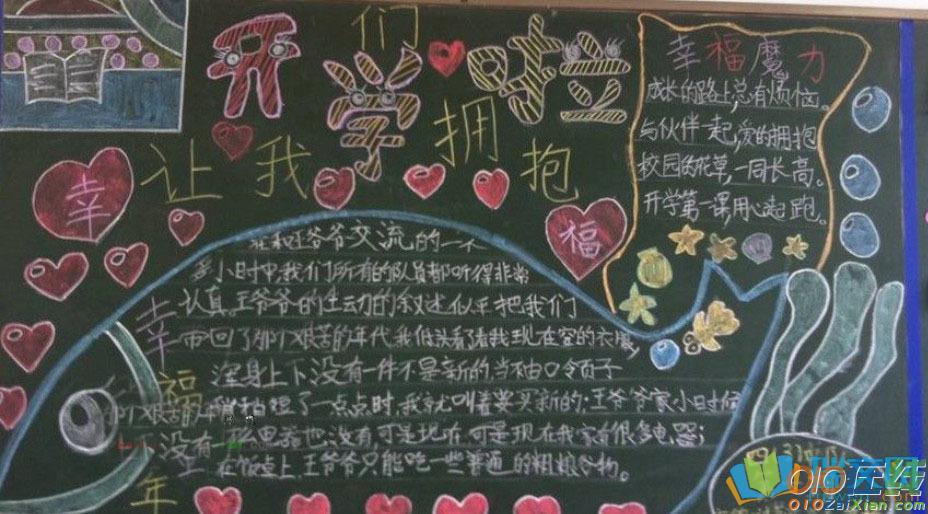 开学啦
让我们拥抱
幸福
幸福魔力
成长的路上,总有烦恼。
与伙伴一起,爱的拥抱
校园的花草,一同长高。
开学第一课用心起跑。
幸福
年
在和王爷爷交流的一个
多小时中,我们所有的队员都听得非常
认真。王爷爷的生动的叙述似乎把我们
带回了那个艰苦的年代。我低头看了看我现在穿的衣服
浑身上下没有一件不是新的,当袖口领子
短了一点点时,我就叫着要买新的;王爷爷家小时候
没有
电器也没有,可是现在,可是现在我家有很多电器;
在饭桌上,王爷爷只能吃一些普通的粗粮谷物。
010在线
010ZaiXian.com